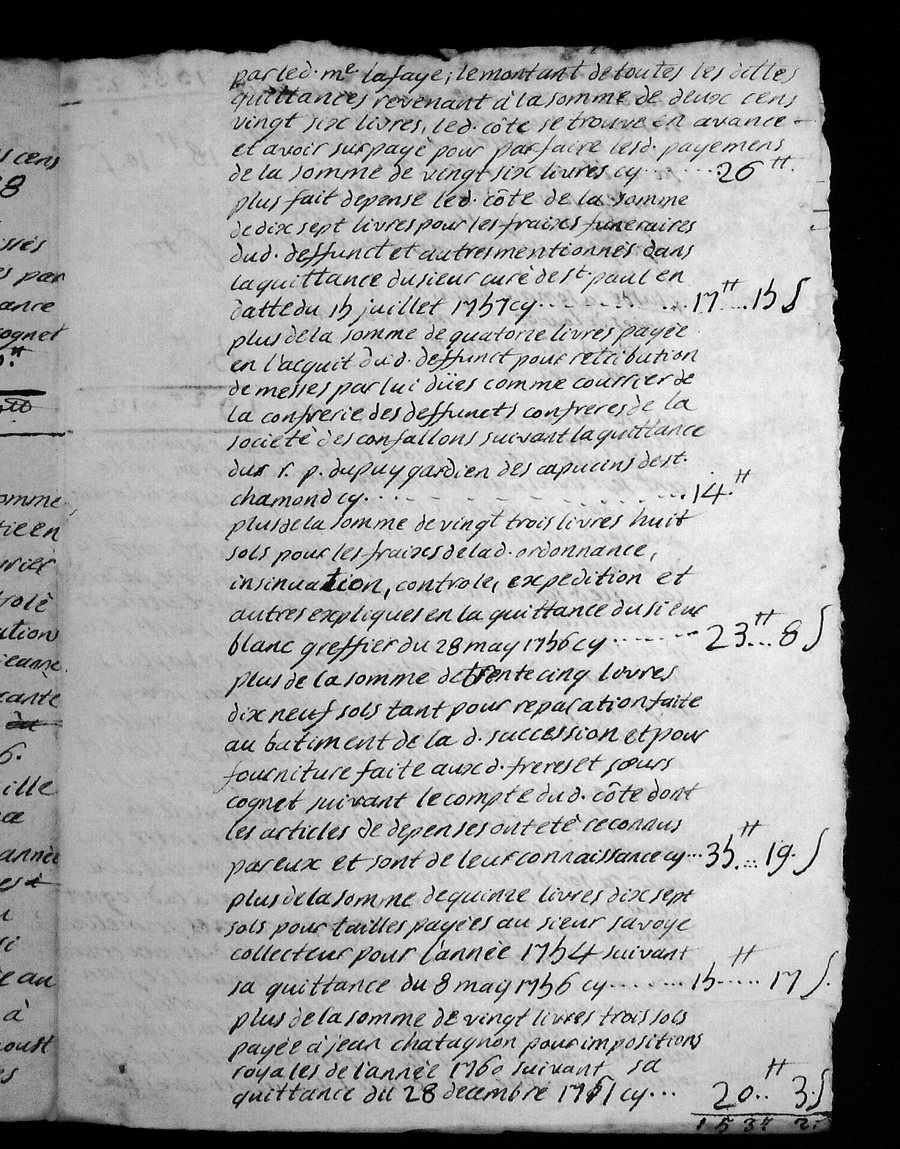 s cens
8
siees par
ance
cognet
omme
tie en
vrier
trolè
ations
jeanne
ille
année
si
à
par led. me lafaye; le montant de toutes les dittes
quittances revenant à la somme de deux cens
vingt six livres, led. côte se trouve en avance
et avoir surpayé pour parfaire lesd. payemens
de la somme de vingt six livres cy.......26 tt.
plus fait depense led. côte de la somme
de dix sept livres pour les fraixs funeraires
dud. deffunct et autres mentionnés dans
la quittance du sieur curé de st. paul en
datte du 15 juillet 1757 cy..........17 tt...15 s
plus de la somme de quatorze livres payée
en l'acquit dud. deffunct pour retribution
de messes par lui düies comme courrier de
la confrerie des deffuncts confreres de la
societè des confallons suivant la quittance
du r. p. dupuy gardien des capucins de st.
chamond cy..........14 tt
plus de la somme de vingt trois livres huit
sols pour les fraixs de lad. ordonnance,
insinuation, controle, expedition et
autres expliques en la quittance du sieur
blanc greffier du 28 may 1756 cy.......23 tt...8 s
plus de la somme de trente cinq livres
dix neuf sols tant pour reparation faite
au batiment de la d. succession et pour
fourniture faite aux d. freres et sœurs
cognet suivant le compte dud. côte dont
les articles de depenses ont etè reconnus
par eux et sont de leur connaissance cy...35 tt...19 s
plus de la somme de quinze livres dix sept
sols pour tailles payées au sieur savoye
collecteur pour l'annèe 1754 suivant
sa quittance du 8 may 1756 cy.......15 tt.....17 s.
plus de la somme de vingt livres trois sols
payée à jean chatagnon pour impositions
royales de l'annèe 1760 suivant sa
quittance du 28 decembre 1761 cy...20 tt..3 s
153 tt 2 s